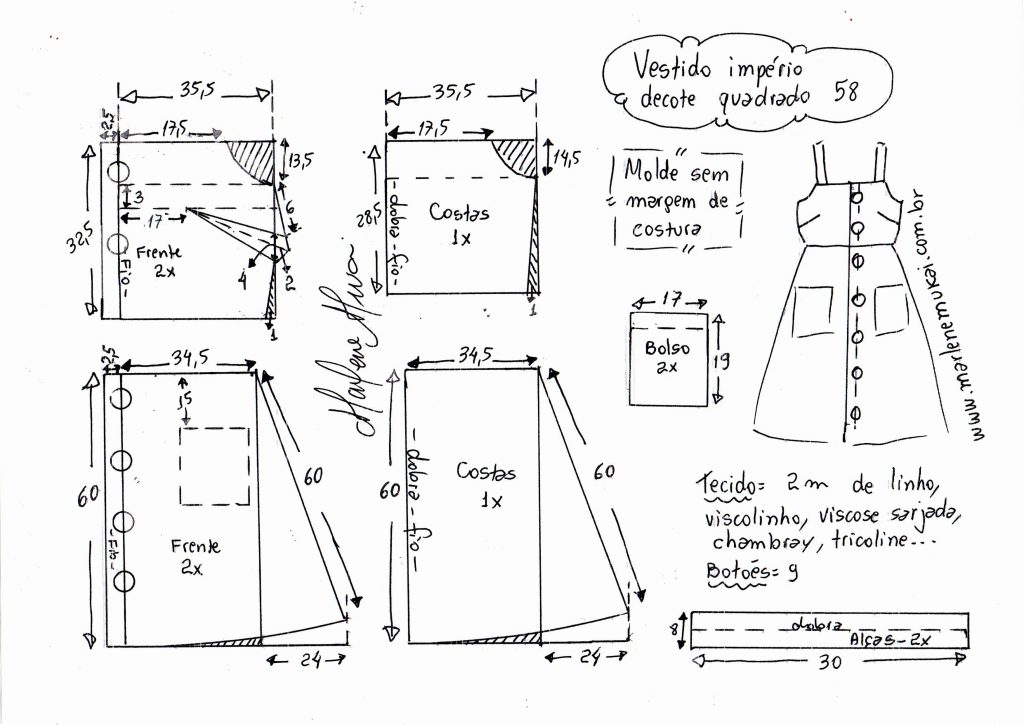 Vestido império
decote quadrado 58
Molde sem
margem de
costura
35,5
2,5
17,5
13,5
3
6
17
32,5
Frente
2x
- Fio -
4
2
1
35,5
17,5
14,5
28,5
- dobra - fio -
Costas
1x
1
Marlene Mukai
www.marlenemukai.com.br
17
Bolso
2x
19
2,5
34,5
15
60
60
- Fio -
Frente
2x
24
34,5
60
- dobra - fio -
Costas
1x
60
24
Tecido= 2m de linho,
viscolinho, viscose sarjada,
chambray, tricoline...
Botoẽs= 9
8
dobra
Alças-2x
30